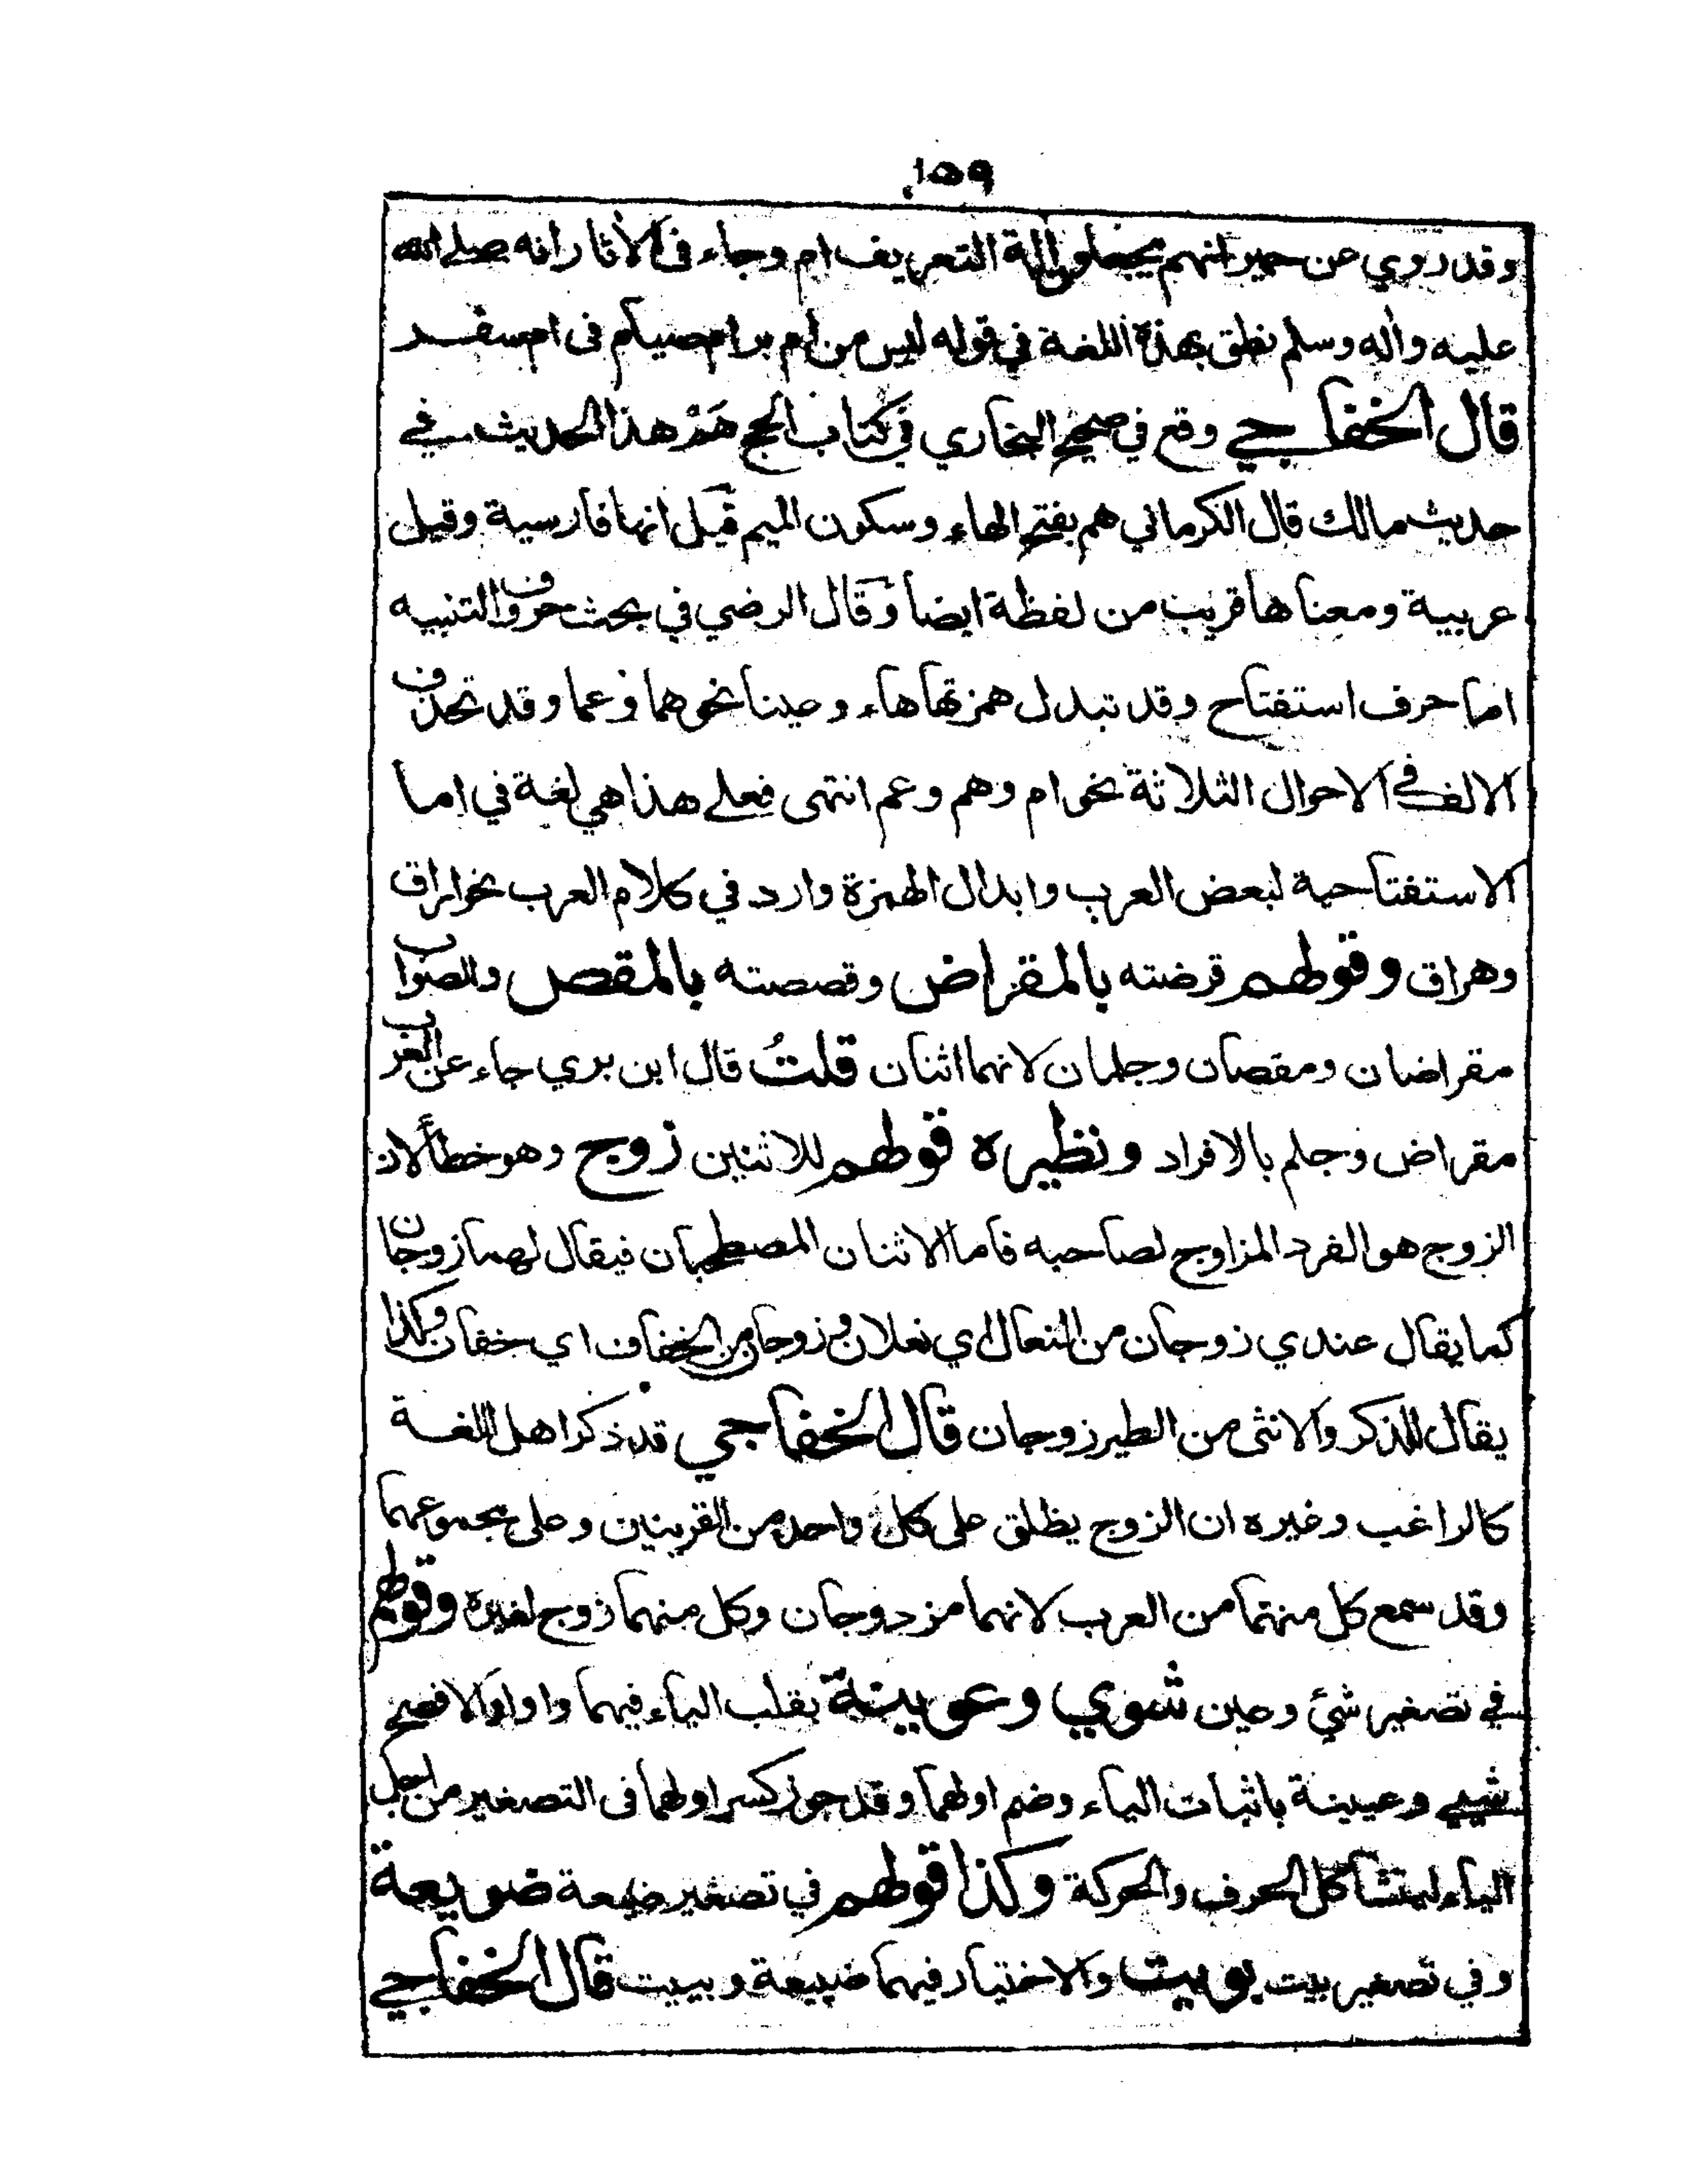 ١٥٩
وقد روي عن حمير انهم يجعلون الة التعريف ام وجاء في الأثار انه صلى الله
عليه وأله وسلم نطق بهذه اللغة في قوله ليس من ام بر ام صيام فى ام سفر
قال الخفاجي وقع في صحيح البخاري في كتاب الحج هَمْ هذا الحديث في
حديث مالك قال الكرماني هم بفتح الهاء وسكون الميم قيل انها فارسية وقيل
عربية ومعناها قريب من لفظة ايضا وقال الرضي في بحث حروف التنبيه
اما حرف استفتاح وقد تبدل همزتها هاء وعينا نحو هما وعما وقد تحذف
الالف في الاحوال الثلاثة نحو ام وهم وعم انتهى فعلى هذا هي لغة في اما
الاستفتاحية لبعض العرب وابدال الهمزة وارد في كلام العرب نحو اراق
وهراق وقولهم قرضته بالمقراض وقصصته بالمقص والصواب
مقراضان ومقصان وجلمان لانهما اثنان قلتُ قال ابن بري جاء عن العرب
مقراض وجلم بالافراد ونظيره قولهم للاثنين زوج وهو خطأ لان
الزوج هو الفرد المزاوج لصاحبه فاما الاثنان المصطحبان فيقال لهما زوجان
كما يقال عندي زوجان من النعال اي نعلان وزوجان من الخفاف اي خفان وكذا
يقال للذكر والانثى من الطير زوجان قال الخفاجي قد ذكر اهل اللغة
كالراغب وغيره ان الزوج يطلق على كل واحد من القرينين وعلى مجموعهما
وقد سمع كل منهما من العرب لانهما مزدوجان وكل منهما زوج لغيره وقولهم
في تصغير شئ وعين شوي وعوينة بقلب الياء فيهما واوا والافصح
شييء وعيينة باثبات الياء وضم اولهما وقد جوز كسر اولهما فى التصغير من اجل
الياء ليتشاكل الحرف والحركة وكذا قولهم في تصغير ضيعة ضويعة
وفي تصغير بيت بويت والاختيار فيهما ضييعة وبييت قال الخفاجي